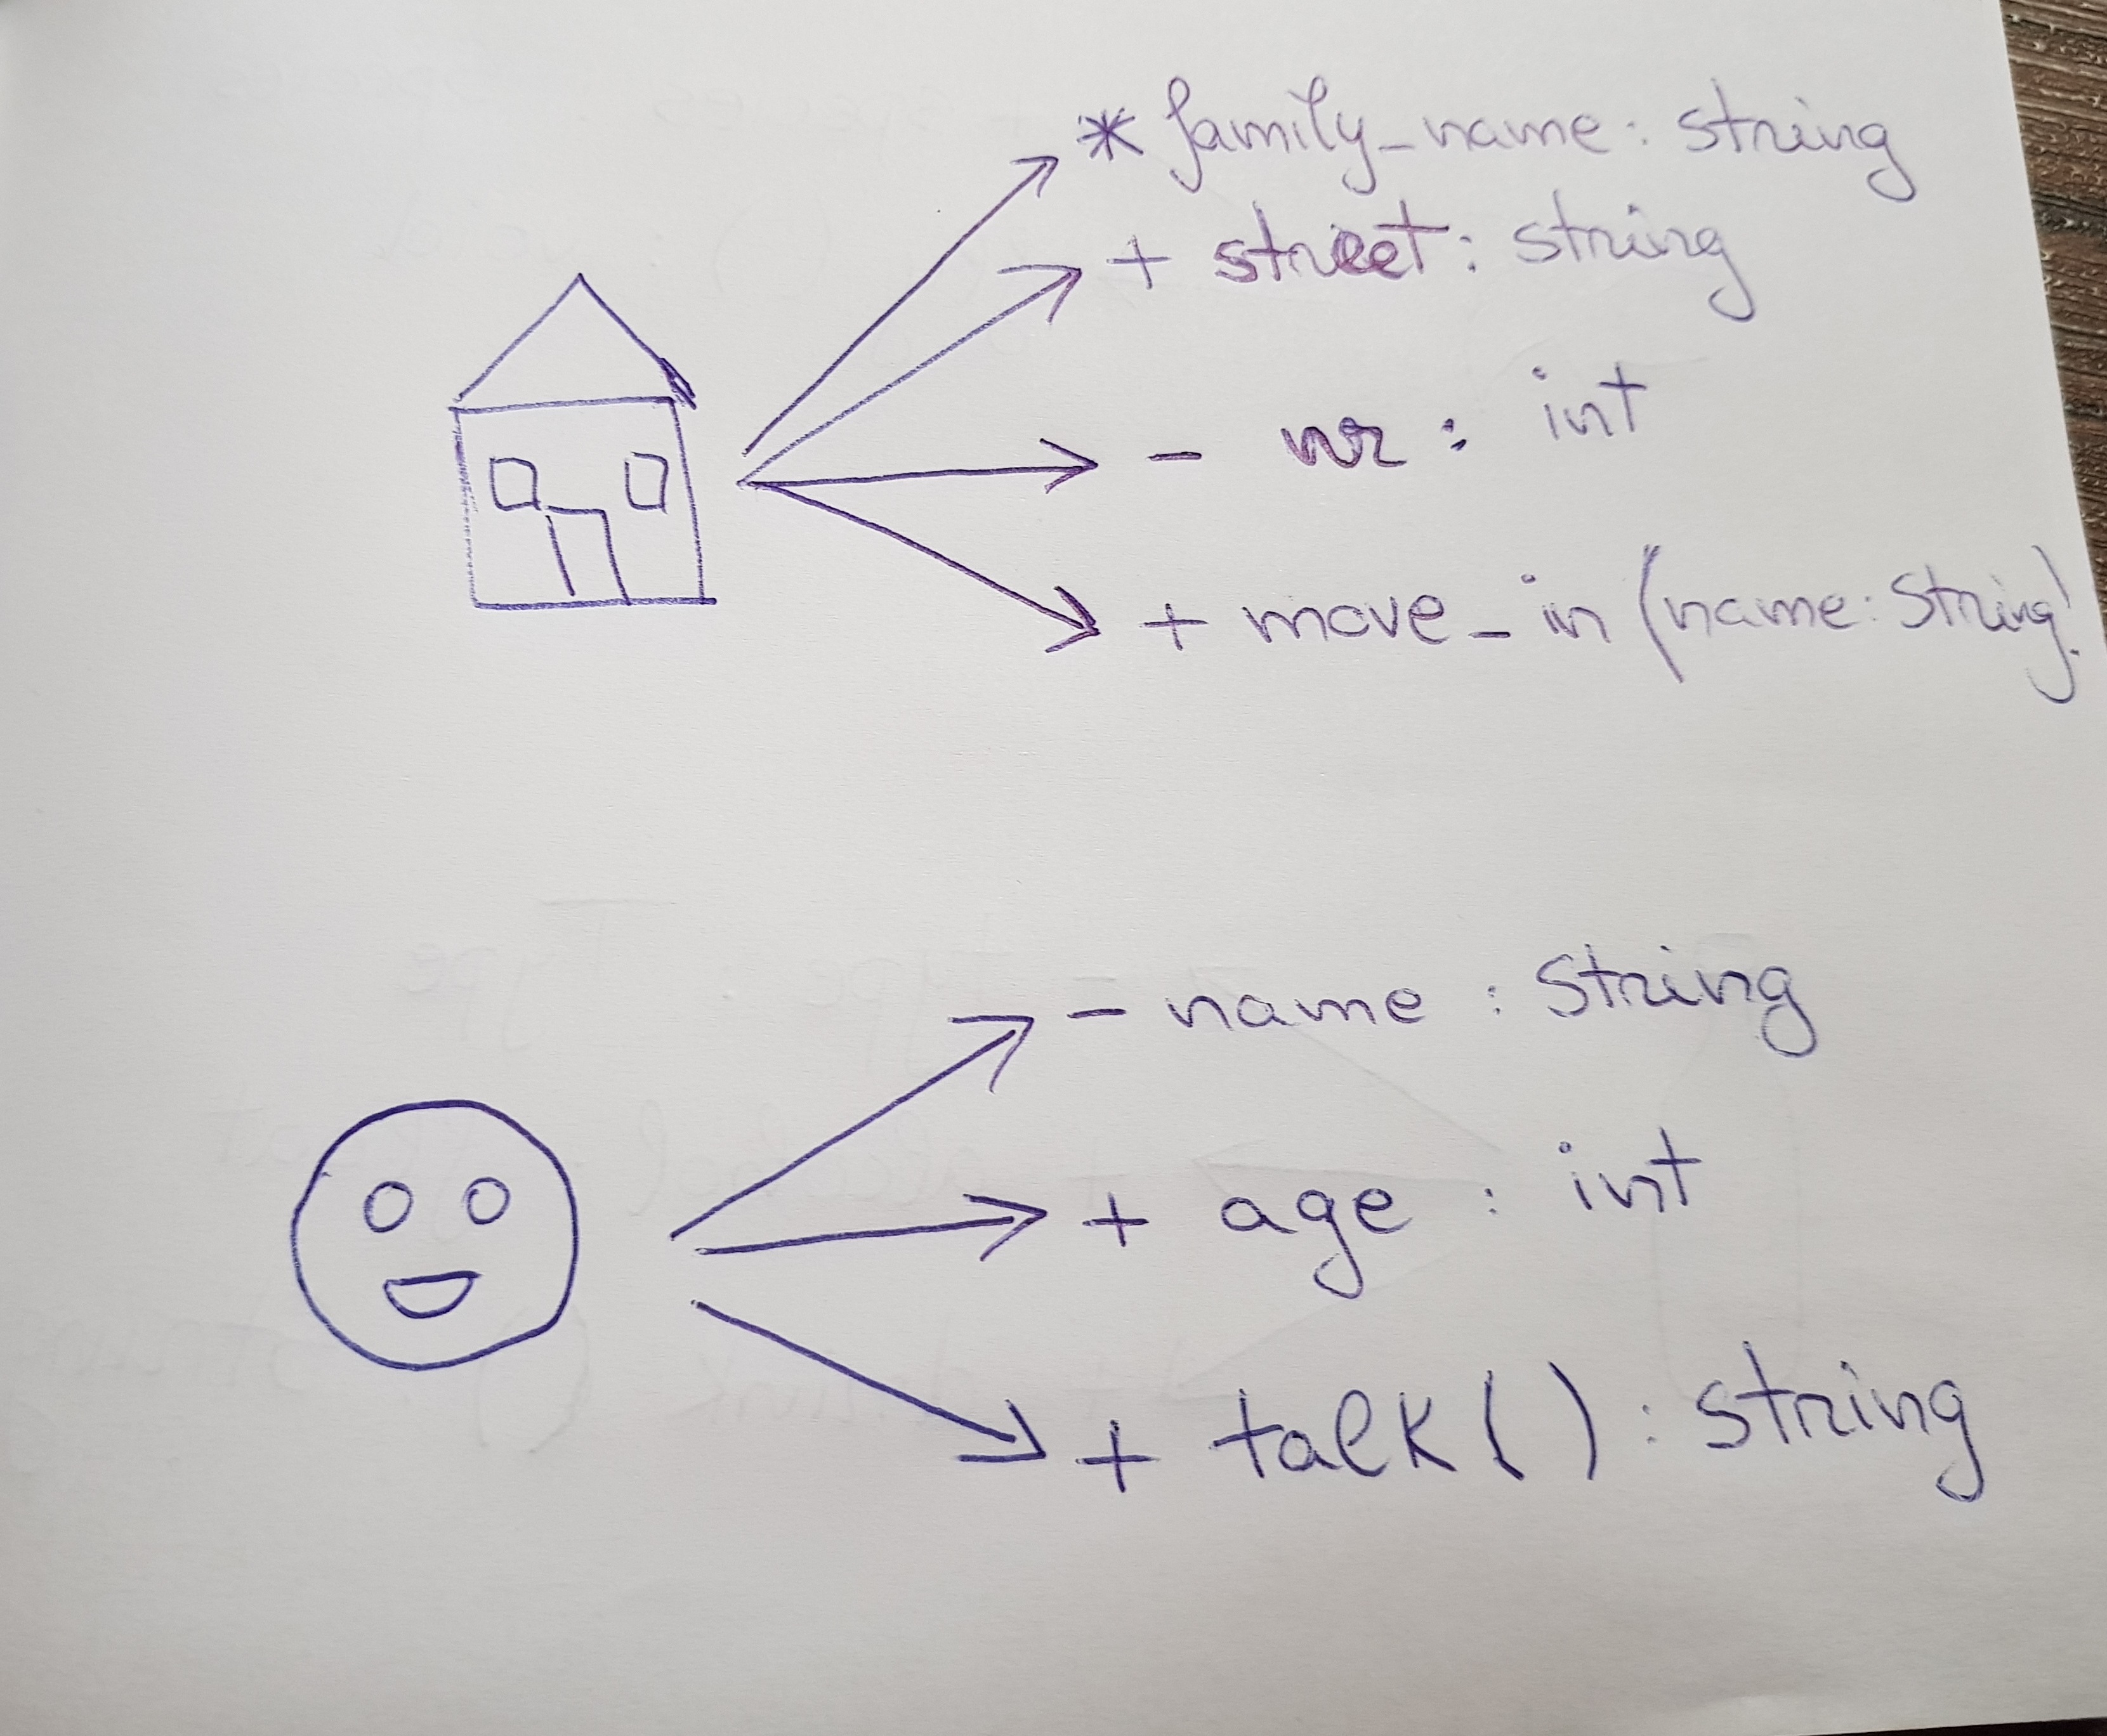 * family_name: string
+ street: string
- nr: int
+ move_in (name: String)
- name: String
+ age: int
+ talk(): string